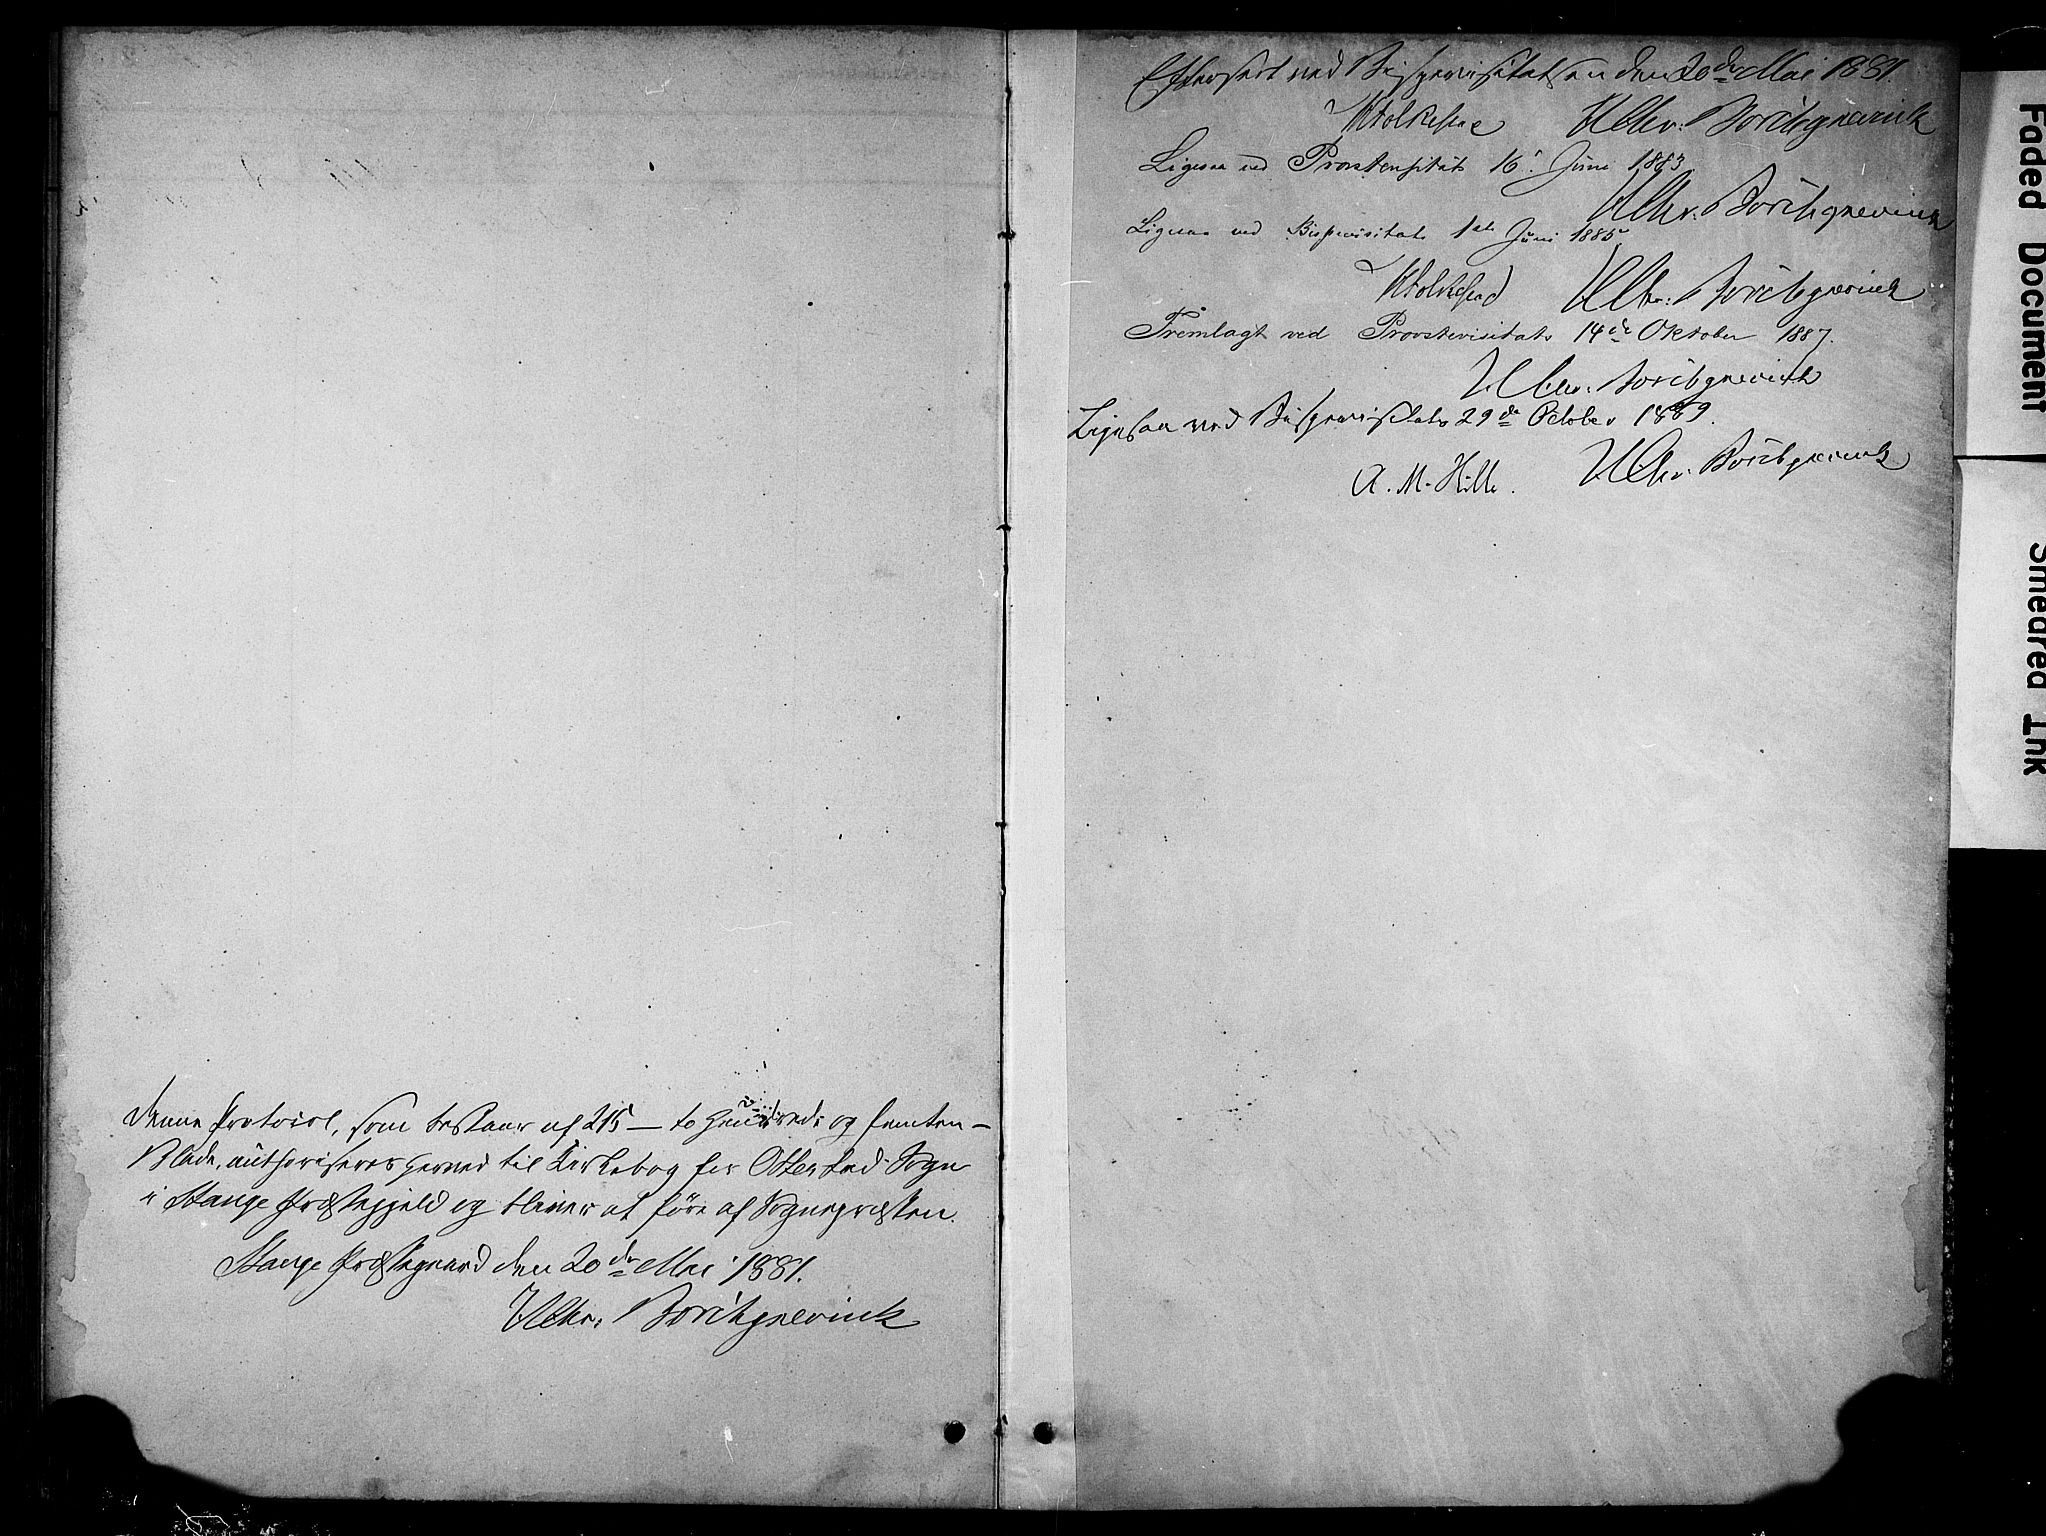 Denne Protocol, som bestaar af 215 — to Hundrede og femten —
Blade, authoriseres herved til Kirkebog for Ottestad Sogn
i Stange Præstegjeld og bliver at føre af Sognepræsten.
Stange Præstegaard den 20de Mai 1881.
H Chr: Borchgrevink
Efterseet ved Bispevisitatsen den 20de Mai 1881.
H Folkestad H Chr: Borchgrevink
Ligesaa ved Provstevisitats 16. Juni 1883.
H Chr. Borchgrevink
Ligesaa ved Bispevisitats 1ste Juni 1885
H Folkestad H Chr: Borchgrevink
Fremlagt ved Provstevisitats 14de Oktober 1887.
H Chr. Borchgrevink
Ligesaa ved Bispevisitats 29de October 1889.
A. M. Hille. H Chr. Borchgrevink
Faded Document
Smeared Ink